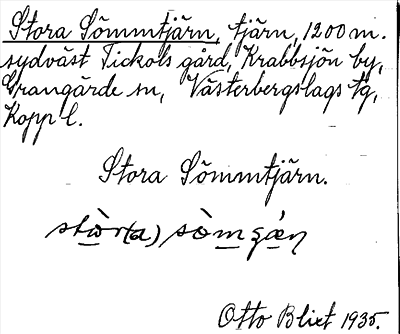 Stora Sömmtjärn, tjärn, 1200 m.
sydväst Tickols gård, Krabbsjön by,
Grangärde sn, Västerbergslags tg,
Kopp l.
Stora Sömmtjärn.
Otto Blixt 1935.